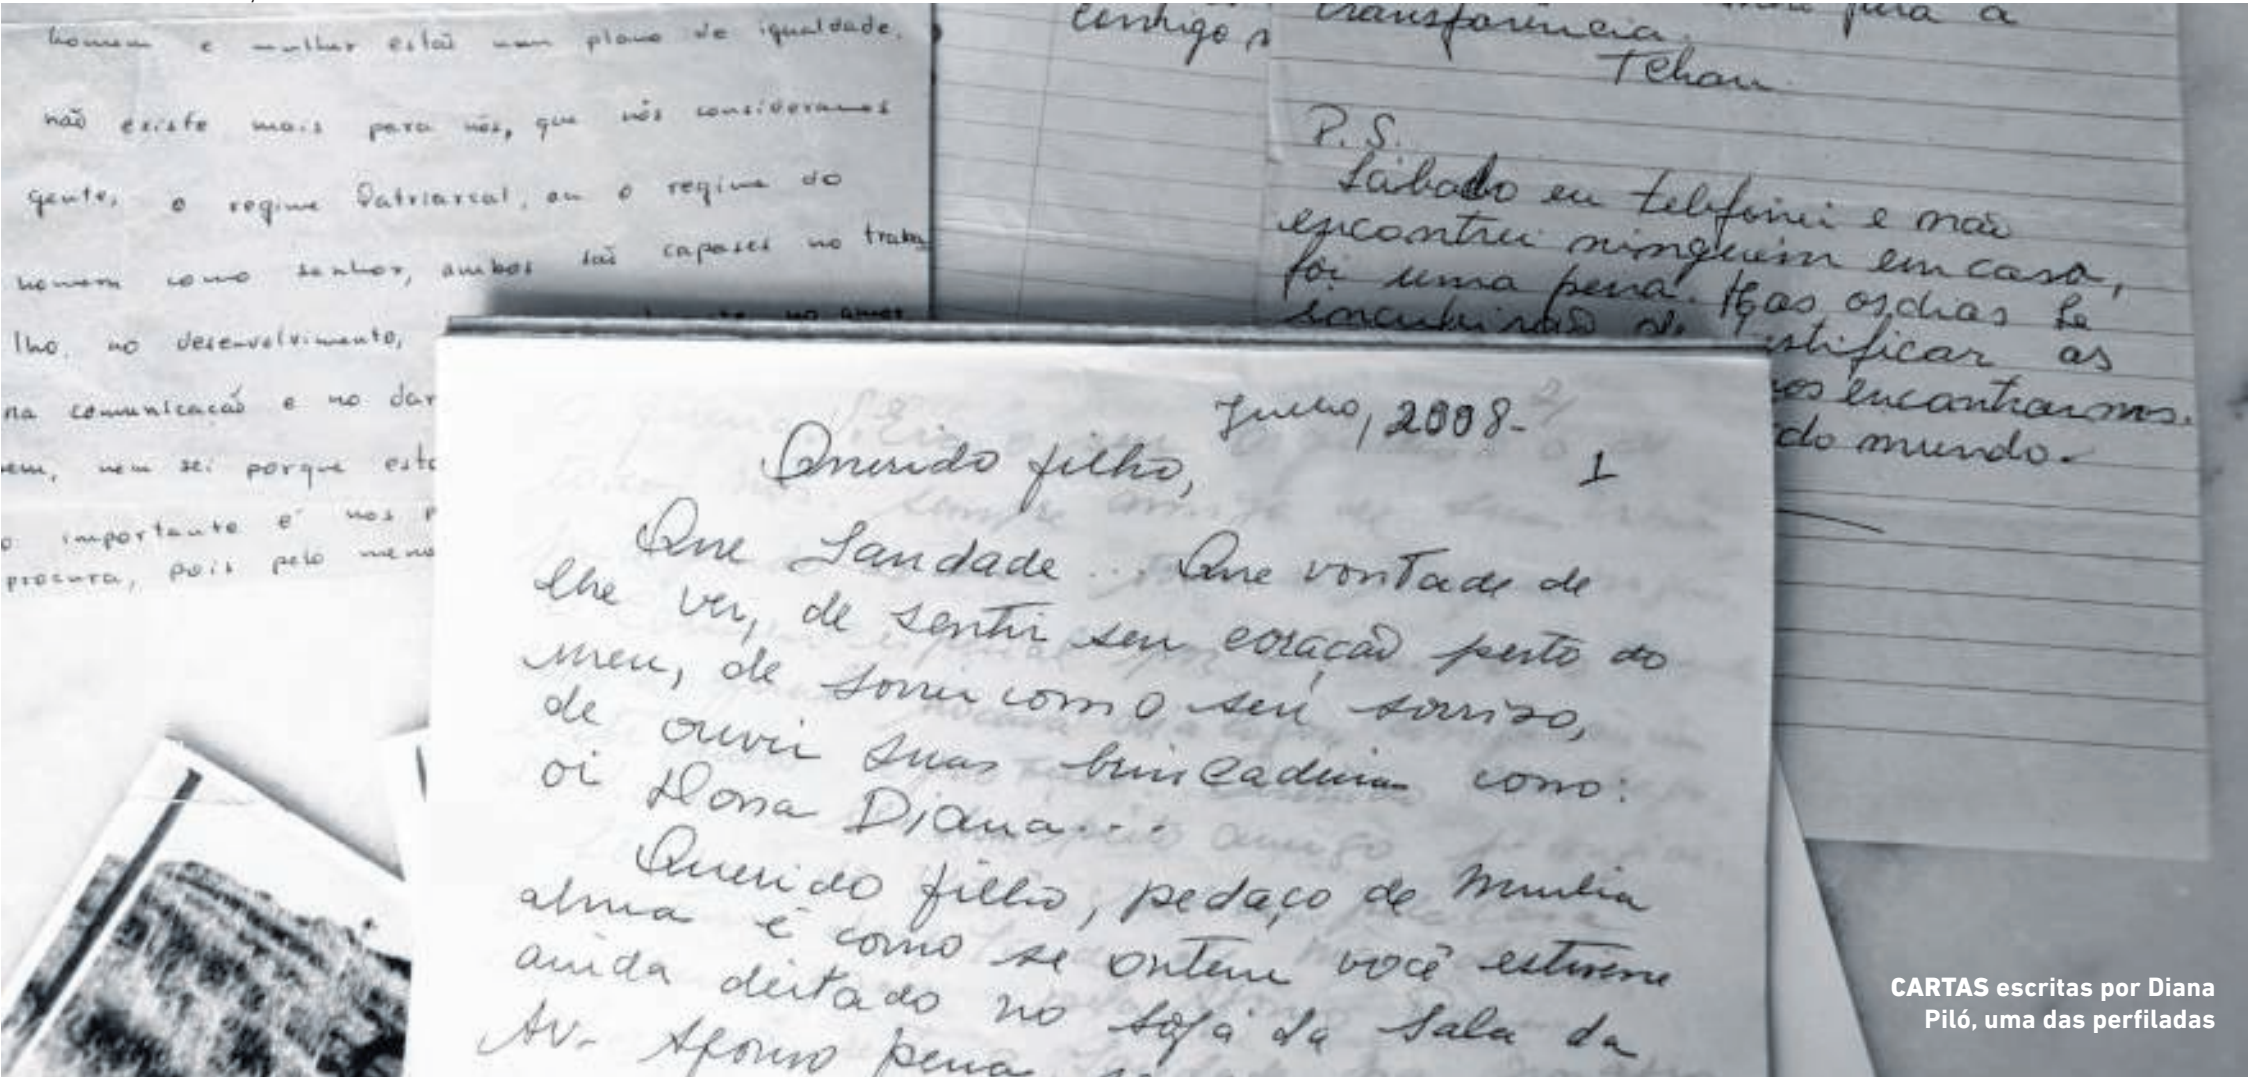 homem e mulher estão num plano de igualdade,
não existe mais para nós, que nós consideramos
gente, o regime Patriarcal, ou o regime do
homem como senhor, ambos são capases no traba
lho, no desenvolvimento,
no amor
na comunicação e no dar
em, nem sei porque
o importante é nos
procura, pois pelo
contigo
transferência.
Tchau.
P.S.
Sábado eu telefonei e não
encontrei ninguém em casa,
foi uma pena. Mas os dias se
encubirão de
as
nos encontrarmos.
do mundo.
2008-
1
Querido filho,
Que Saudade... Que vontade de
lhe ver, de sentir seu coração perto do
meu, de sorrir com o seu sorriso,
de ouvir suas brincadeiras como:
oi Dona Diana...
Querido filho, pedaço de minha
alma é como se ontem você estivesse
ainda deitado no sofá da sala da
Av. Afonso pena
CARTAS escritas por Diana
Piló, uma das perfiladas